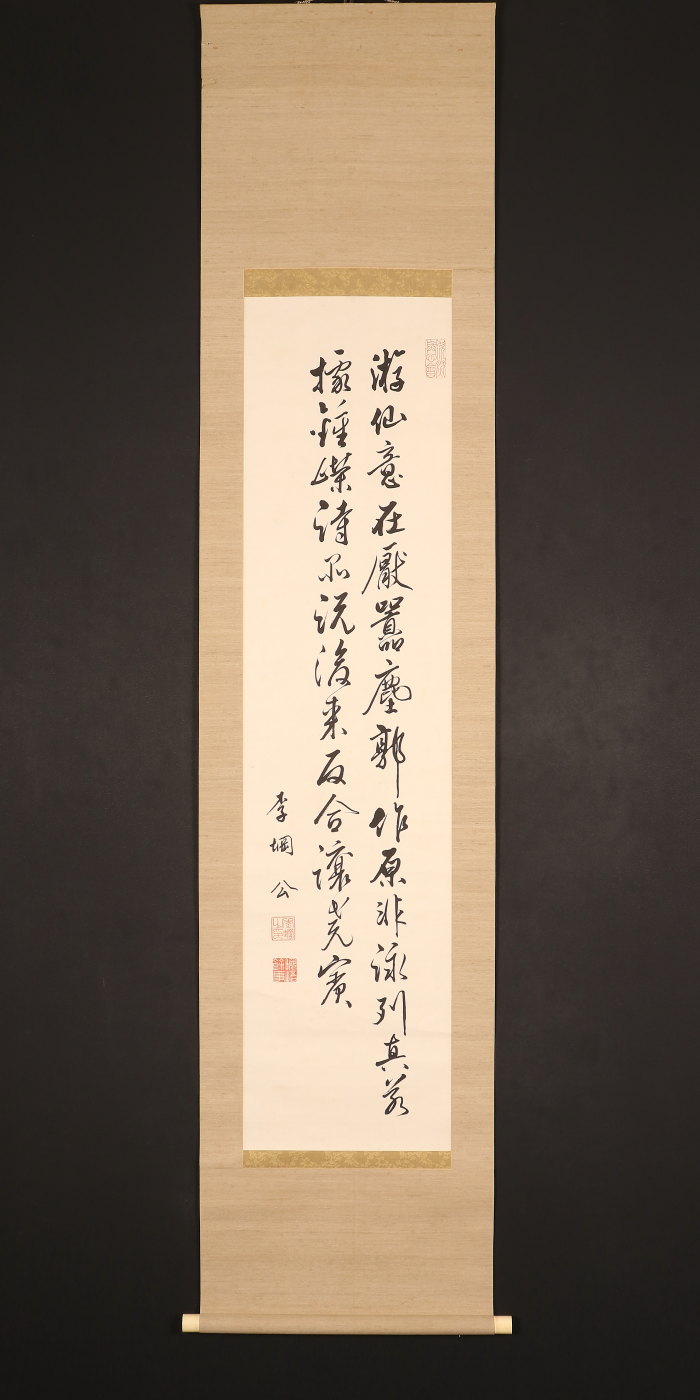 游仙意在厭囂塵郭作原非詠列真若
據鍾嶸詩品說後來反合讓堯賓
李堈公